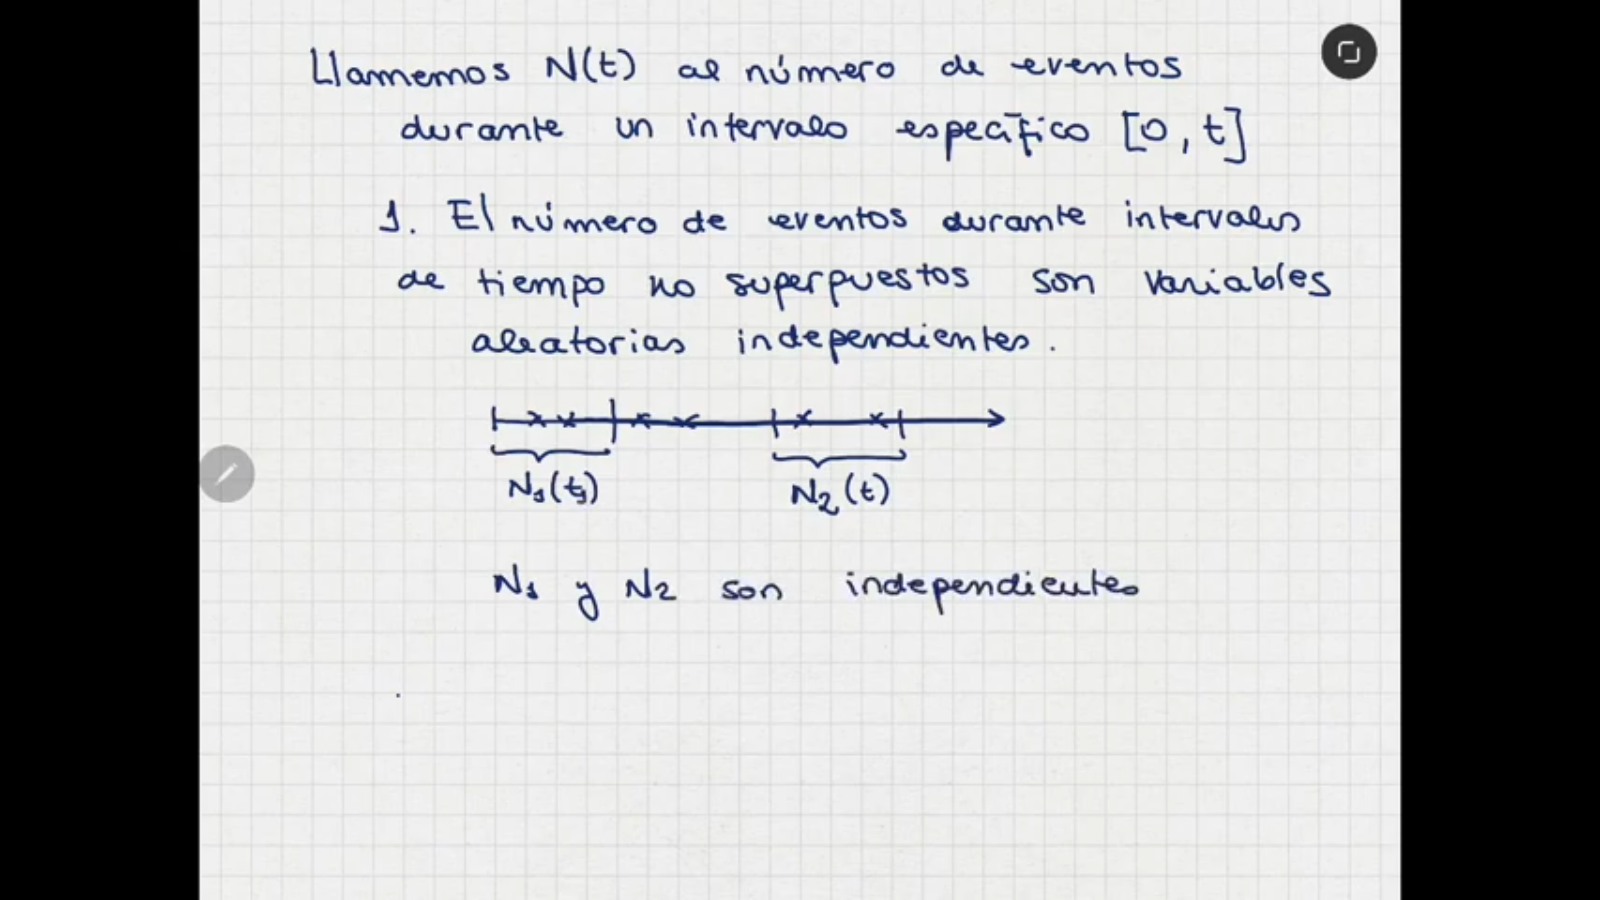 Llamemos N(t) al número de eventos
durante un intervalo específico [0, t]
1. El número de eventos durante intervalos
de tiempo no superpuestos son variables
aleatorias independientes.
N₁(t₁) N₂(t)
N₁ y N₂ son independientes